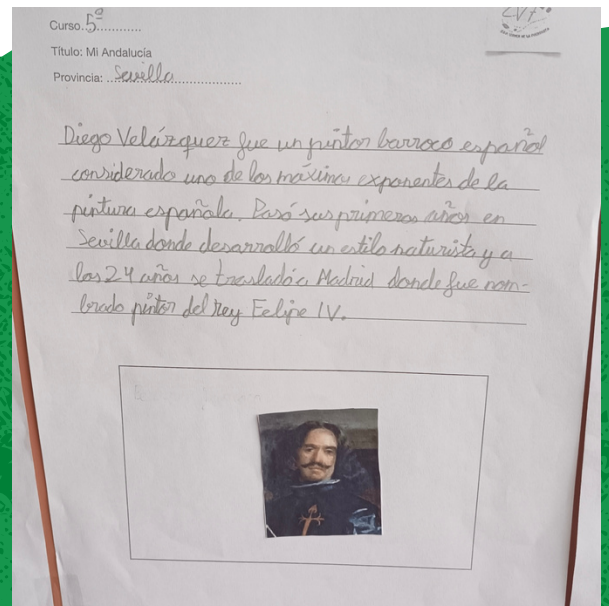 Curso. 5º
Título: Mi Andalucía
Provincia: Sevilla
Diego Velázquez fue un pintor barroco español
considerado uno de los máximos exponentes de la
pintura española. Pasó sus primeros años en
Sevilla donde desarrolló un estilo naturista y a
los 24 años se trasladó a Madrid donde fue nom-
brado pintor del rey Felipe IV.